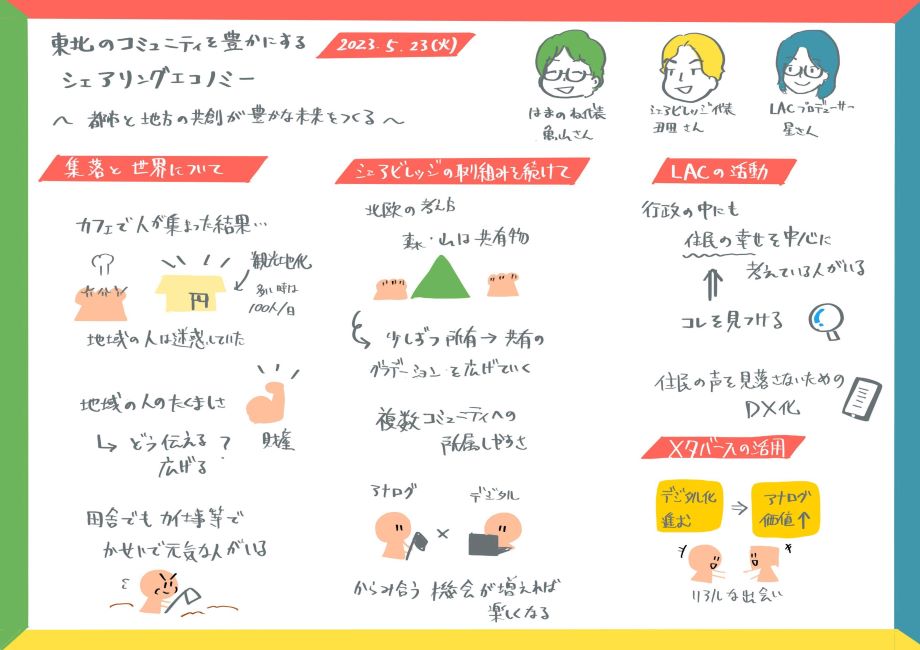 東北のコミュニティを豊かにする
シェアリングエコノミー
〜 都市と地方の共創が豊かな未来をつくる 〜
2023.5.23(火)
はまのね代表
亀山さん
シェアビレッジ代表
丑田さん
LACプロデューサー
星さん
集落と世界について
カフェで人が集まった結果…
観光地化
多い時は
100人/日
円
地域の人は迷惑していた
地域の人のたくましさ
どう伝える?
広げる
財産
田舎でも力仕事等で
かせいで元気な人がいる
シェアビレッジの取り組みを続けて
北欧の考え方
森・山は共有物
少しずつ所有→共有の
グラデーションを広げていく
複数コミュニティへの
所属しやすさ
アナログ
×
デジタル
からみ合う機会が増えれば
楽しくなる
LACの活動
行政の中にも
住民の幸せを中心に
考えている人がいる
コレを見つける
住民の声を見落さないための
DX化
メタバースの活用
デジタル化
進む
⇒
アナログ
価値↑
リアルな出会い